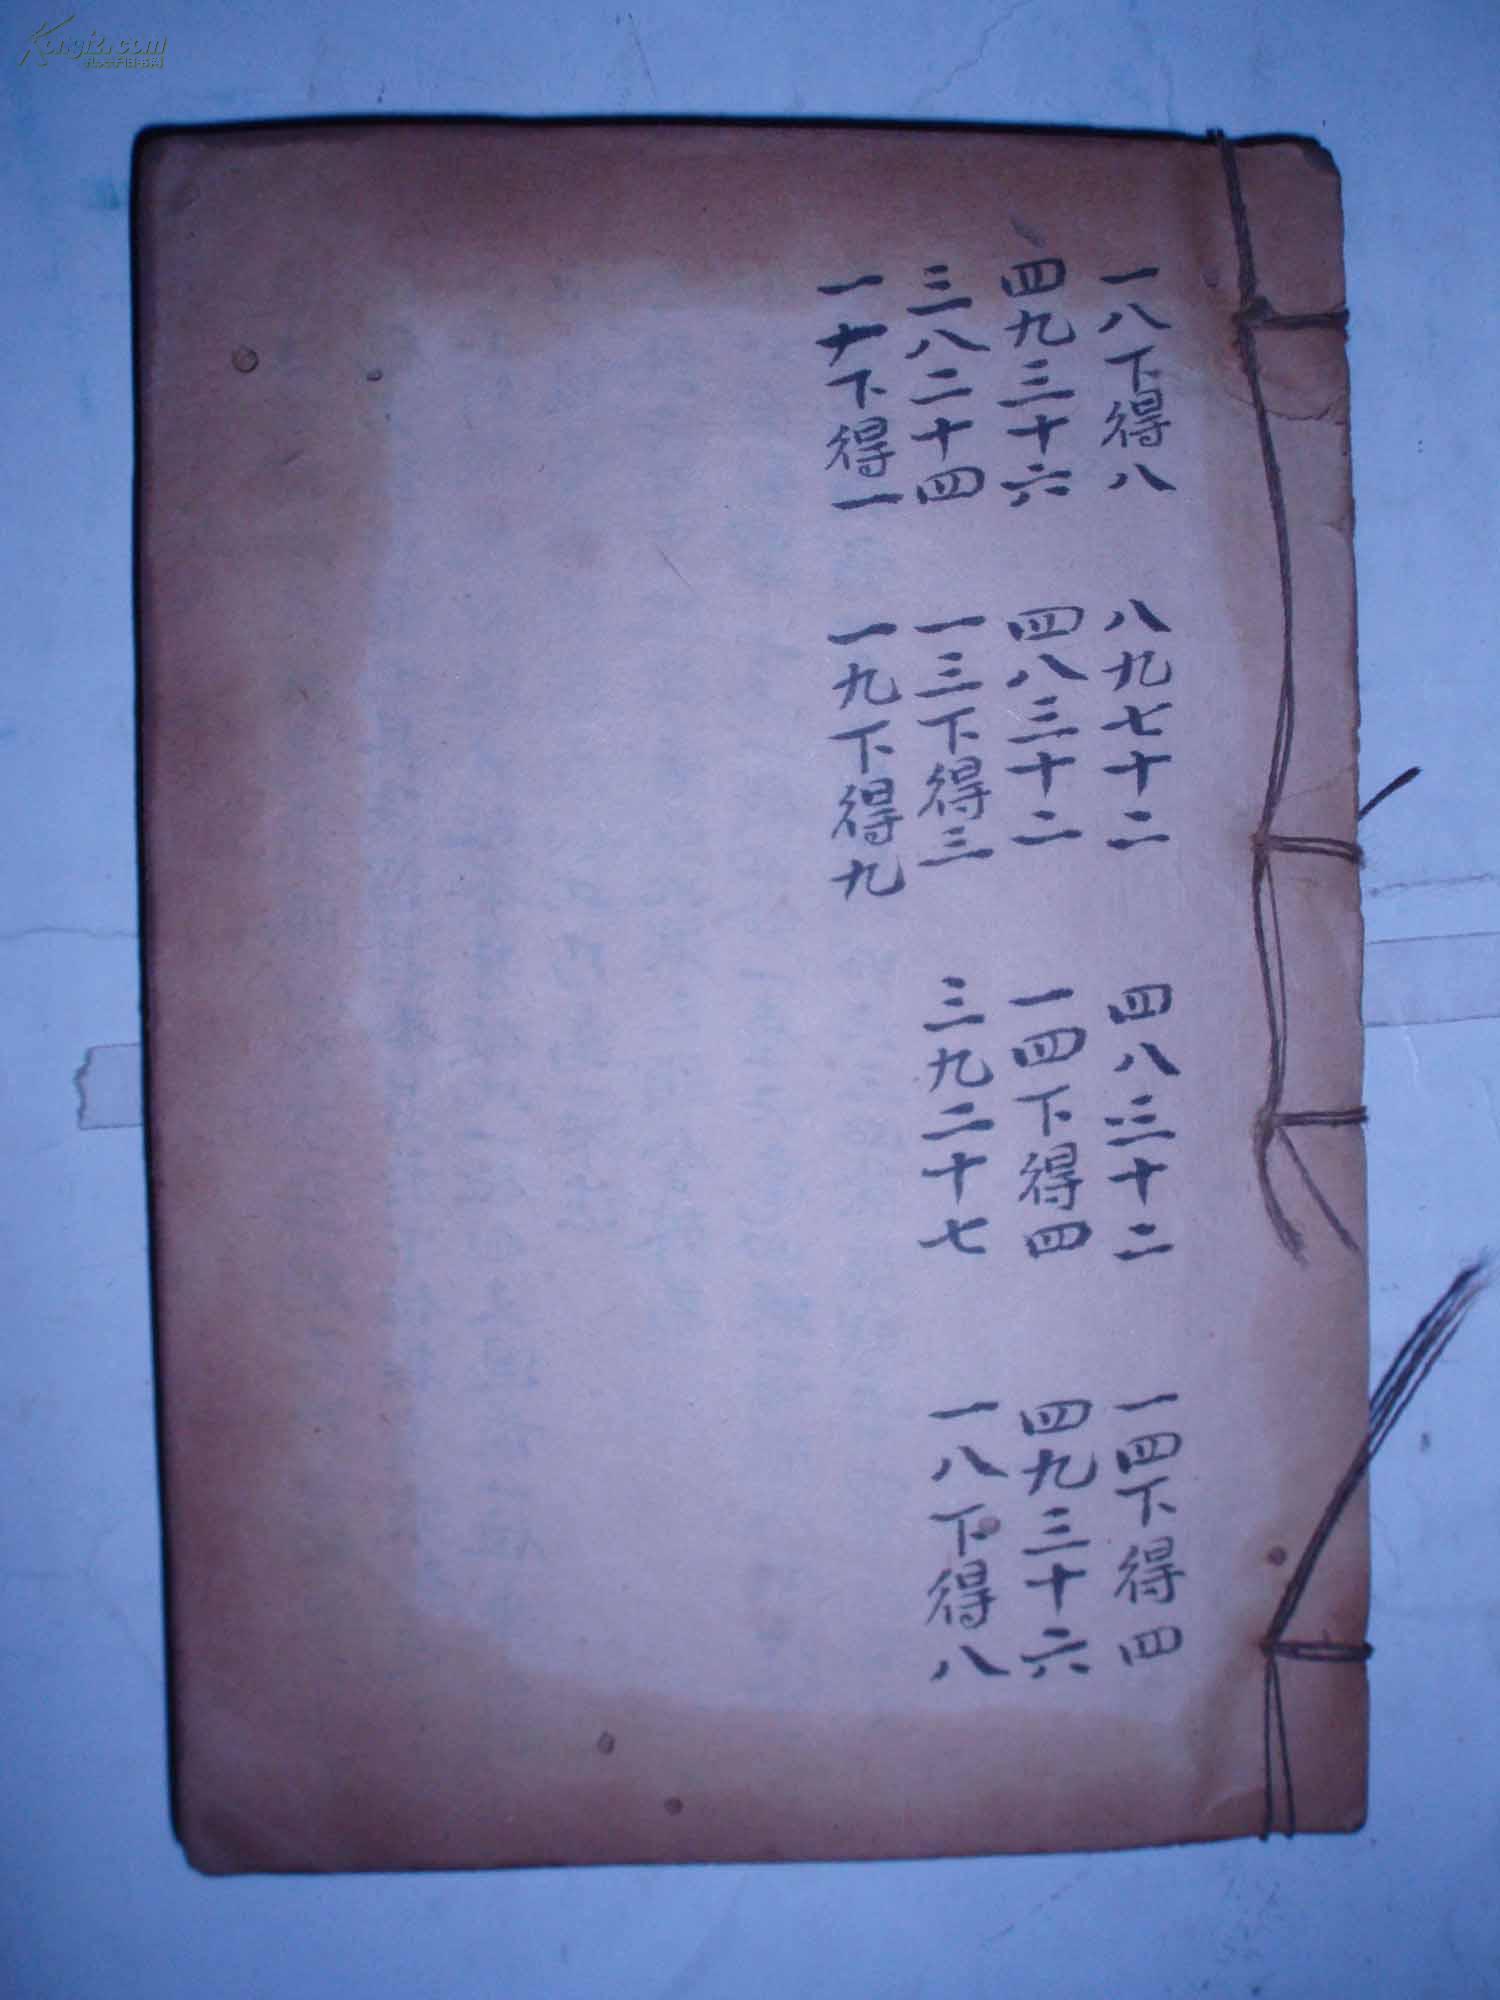 一八下得八 八九七十二 四八三十二 一四下得四
四九三十六 四八三十二 一四下得四 四九三十六
三八二十四 一三下得三 三九二十七 一八下得八
一六下得一 一九下得九
Kongfz.com
孔夫子旧书网